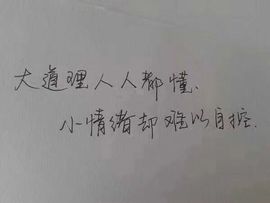 大道理人人都懂、
小情绪却难以自控.